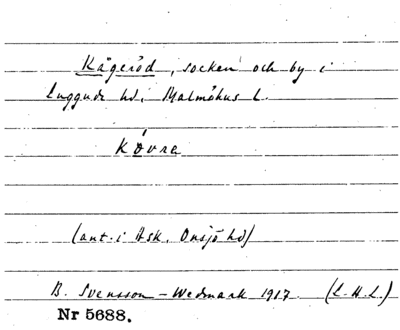 Kågeröd, socken och by i
Luggude hd, Malmöhus l.
Kövra
(ant. i Ask, Onsjö hd)
B. Svensson-Wedmark 1917. (L.H.L.)
Nr 5688.